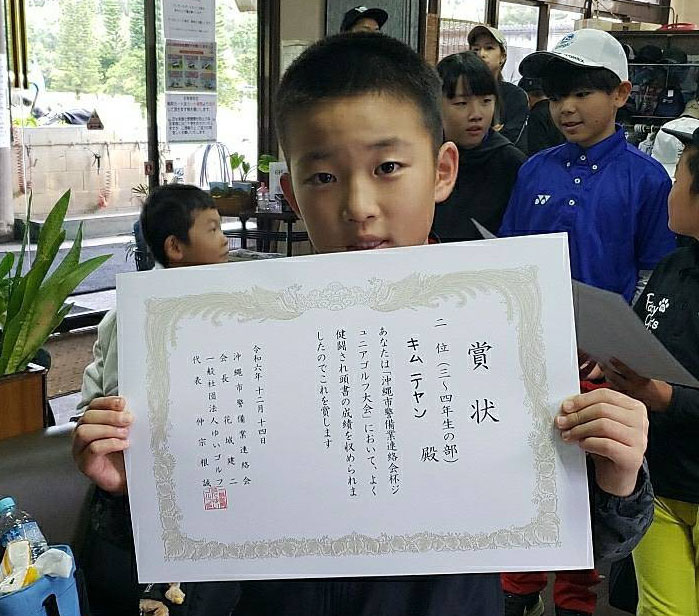 賞状
二位(三〜四年生の部)
キムテヤン 殿
あなたは「沖縄市警備業連絡会杯ジ
ュニアゴルフ大会」において、よく
健闘され頭書の成績を収められま
したのでこれを賞します
令和六年十二月十四日
沖縄市警備業連絡会
会長 花城建二
一般社団法人ゆいゴルフ
代表 仲宗根誠
YONEX